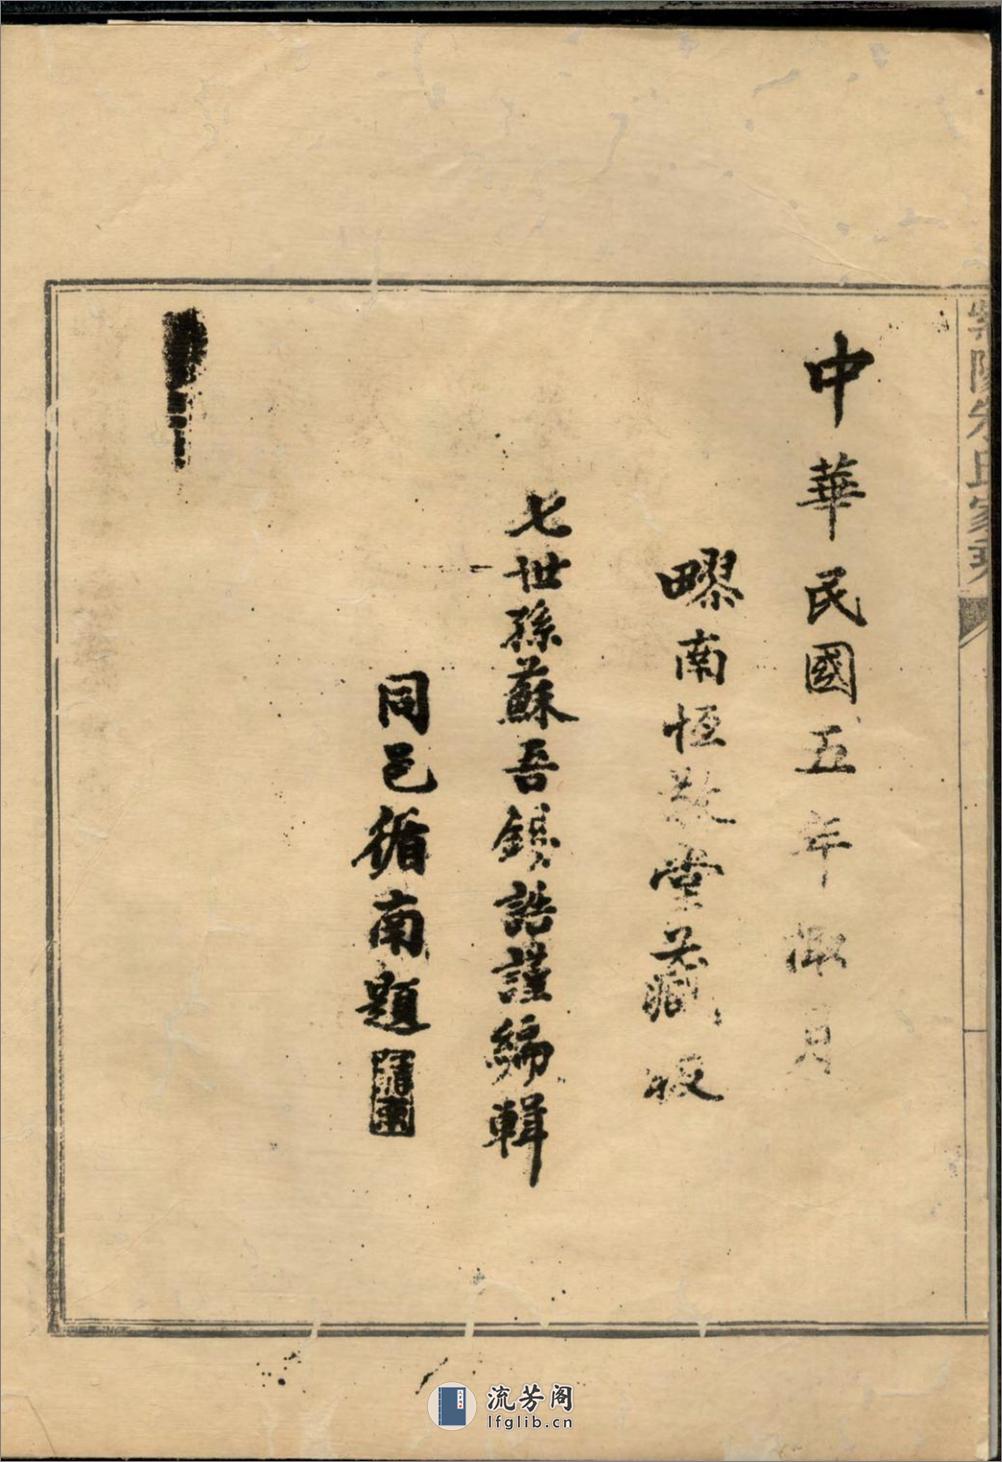 中華民國五年 月
疁南恒敬堂藏版
七世孫蘇吾錫誥謹編輯
同邑循南題
紫陽朱氏家乘
流芳阁
lfglib.cn